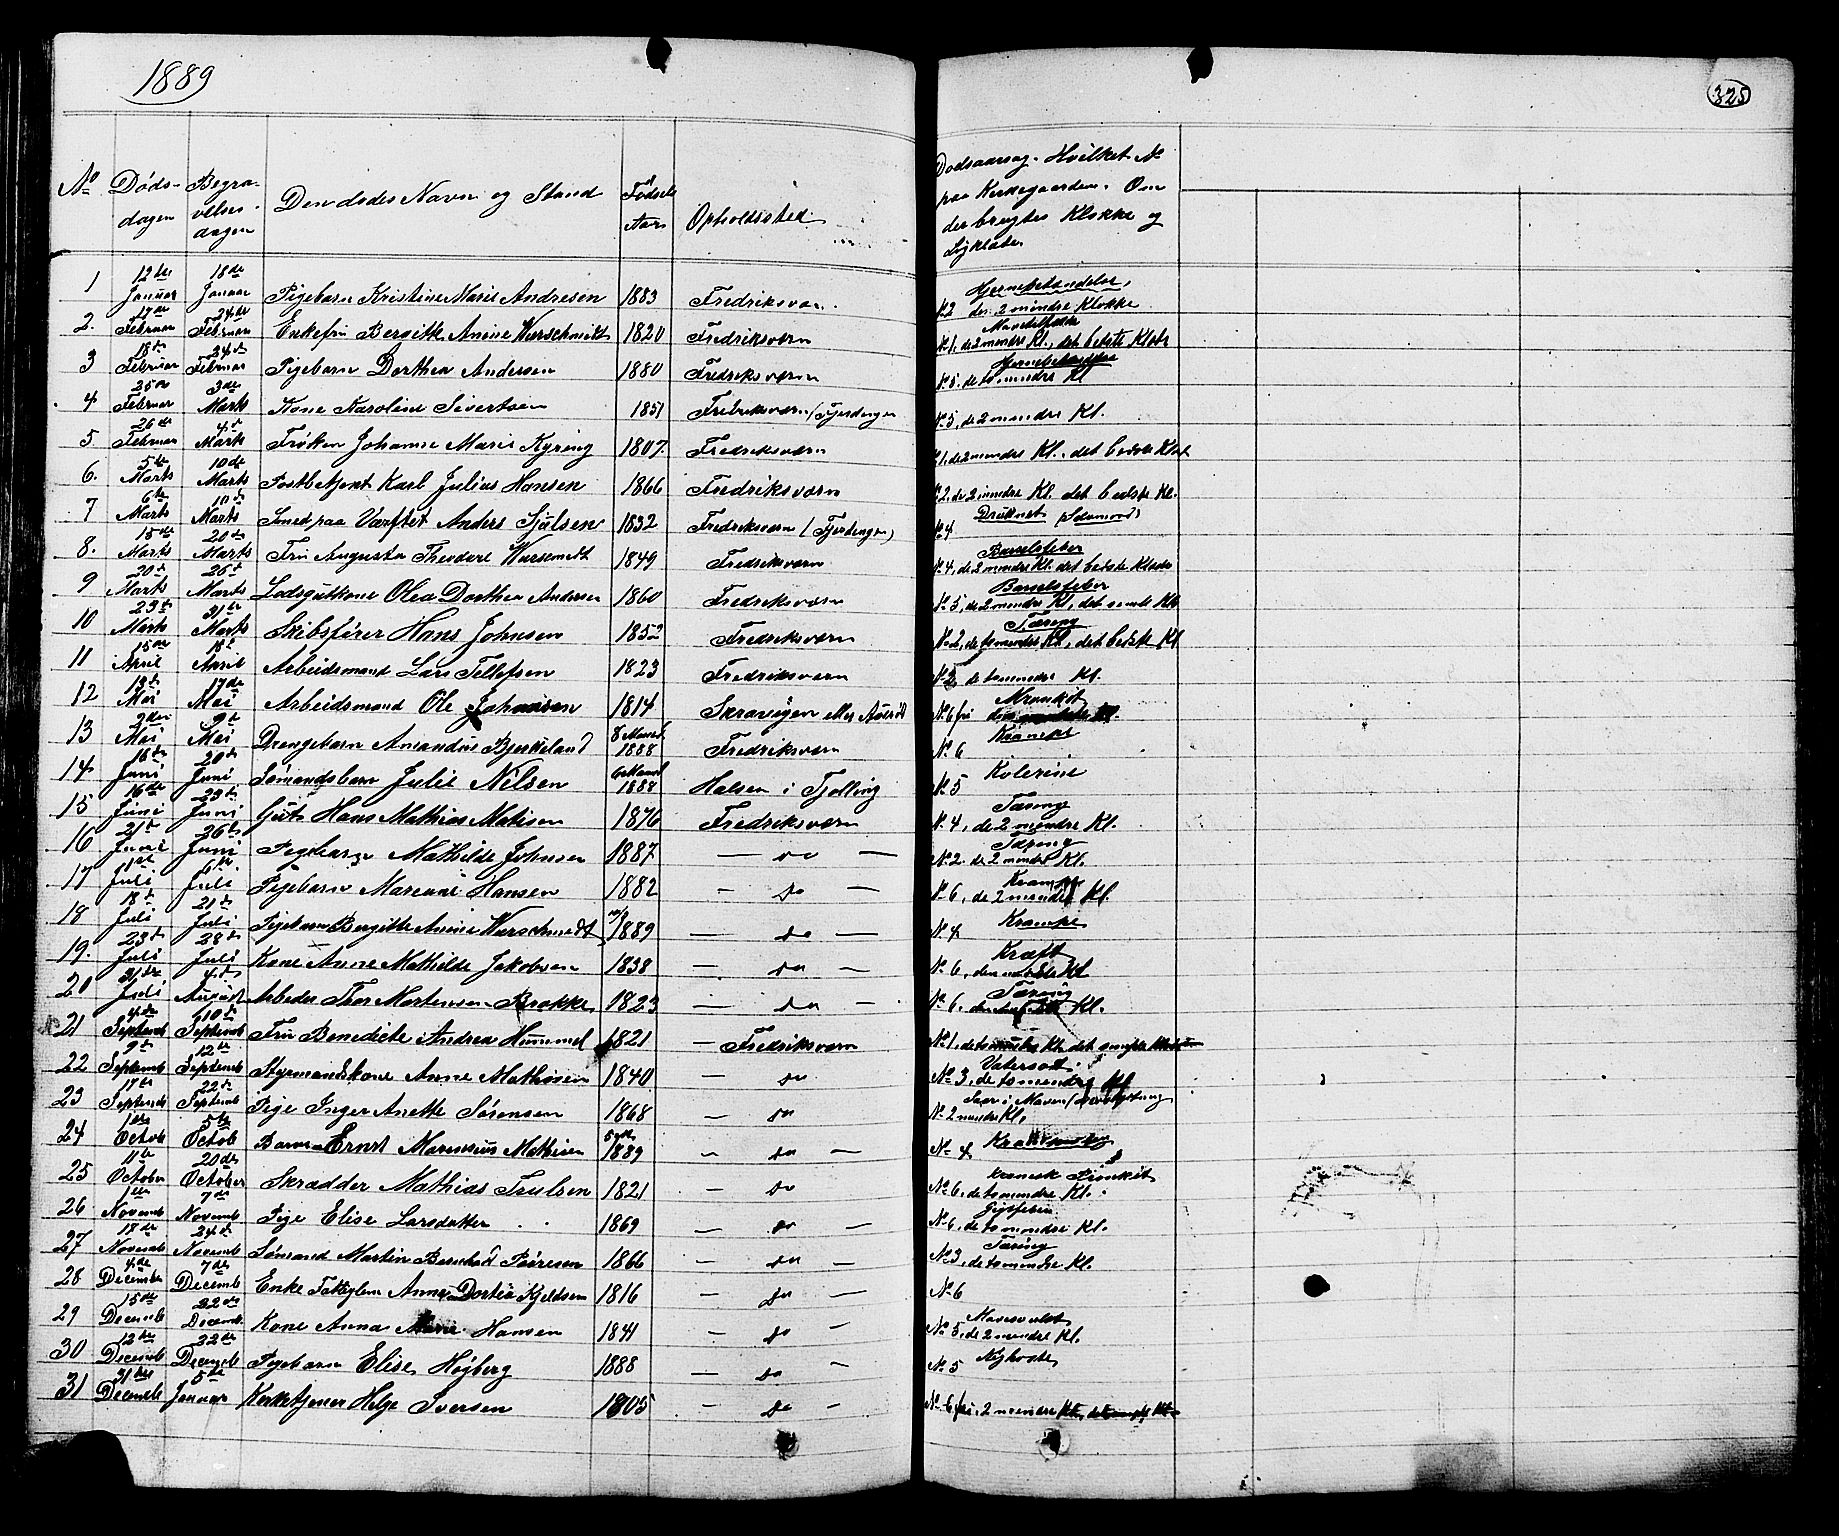 1889
325
No Døds- dagen Begra- velses- dagen Den dødes Navn og Stand Fødsels Aar Opholdssted
Dødsaarsag. Hvilket No
paa Kirkegaarden. Om
der brugtes Klokke og
Ligklæde.
1 12te Januar 18de Januar Pigebarn Kristine Marie Andresen 1883 Fredriksværn Hjernebetændelse No 2 den 2 mindre Klokke
2. 17de Februar 24de Februar Enkefru Bergitte Anine Wurschmidt 1820 Fredriksværn No 1, de 2 mindre Kl., det bedste Klæde
3 18de Februar 24de Februar Pigebarn Dorthea Andersen 1880 Fredriksværn No 5. de to mindre Kl
4 25de Februar 3de Marts Kone Karoline Sivertsen 1851 Fredriksværn (Fjerdingen No 5, de 2 mindre Kl.
5 26de Februar 4de Marts Frøken Johanne Marie Kyring 1807. Fredriksværn No 1. de 2 mindre Kl. det bedste Klæde
6. 5te Marts 10de Marts Postbetjent Karl Julius Hansen 1866 Fredriksværn No 2. de 2 mindre Kl. det bedste Kl.
7 6te Marts 10de Marts Smed paa Værftet Anders Sjulsen 1832 Fredriksværn (Fjerdingen) Druknet No 4
8. 15de Marts 20de Marts Fru Augusta Theodore Wursemdt 1849 Fredriksværn Barselfeber No 4, de 2 mindre Kl. det bedste Klæde
9 20de Marts 26de Marts Lodsgutkone Olea Dorthea Andersen 1860 Fredriksværn Barselsfeber No 5, de 2 mindre Kl, det Klæ
10 23de Marts 31te Marts Skibsfører Hans Johnsen 1852 Fredriksværn Tæring No 2, de to mindre Kl, det bedste Kl
11 15de April 18de April Arbeidsmand Lars Tellefsen 1823 Fredriksværn No 2 de to mindre Kl.
12 13de Mai 17de Mai Arbeidsmand Ole Johansen 1814 Skravigen eller No 6 fri
13 2den Mai 9de Mai Drengebarn Amandus Bjerkeland 1888 Fredriksværn Krampe No 6
14 16de Juni 20de Juni Sømandsbarn Julie Nilsen 1888 Halsen i Tjølling Kolerine No 5
15 16de Juni 23de Juni Gut Hans Mathias Matisen 1876 Fredriksværn Tæring No 4, de 2 mindre Kl.
16 21de Juni 26de Juni Pigebarn Mathilde Johnsen 1887 — do — Tæring No 2. de 2 mindre Kl.
17 1ste Juli 6te Juli Pigebarn Mareane Hansen 1882 — do — Krampe No 6, de 2 mindre Kl.
18 18de Juli 21de Juli Pigebarn Bergitte Anine Wurschmidt 1889 — do — Krampe No 4
19. 23de Juli 28de Juli Kone Anne Mathilde Jakobsen 1838 — do — Kræft No 6, den mindste Kl
20 31te Juli 4de August Arbeider Thor Mortensen Brokke 1823 — do — Tæring No 6. Kl.
21 4de Septemb 10de Septemb Fru Benedicte Andrea Hummel 1821 — Fredriksværn No 1. de to Kl. det
22 9de Septemb 12te Septemb Styrmandskone Anne Mathisen 1840 — do Vatersot No 3, de to mindre Kl
23 17de Septemb 22de Septemb Pige Inger Anette Sørensen 1868 — do Saar i Maven No 2 mindre Kl,
24 1ste Octob 5te Octob Barn Ernst Marensius Mathisen 1889 — do — No 4
25 11te October 20de October Skrædder Mathias Trulsen 1821 — do No 6. de to mindre Kl.
26 1ste Novemb 7de Novemb Pige Elise Larsdatter 1869 — do — Gigtfeber No 6, de to mindre Kl.
27 18de Novemb 24de Novemb Sømand Martin Bernhard Pedersen 1866 — do — Tæring No 3, de to mindre Kl.
28 4de December 7de Decemb Enke Fattiglem Anne Dortea Kjeldsen 1816 — do — No 6
29 15de Decemb 22de Decemb. Kone Anna Marie Hansen 1841 — do — Mavesvulst No 5, de 2 mindre Kl.
30 12te Decemb 22de Decemb Pigebarn Elise Høyberg 1888 — do — Kighoste No 5
31 31te Decemb 5te Januar Kirketjener Helge Iversen 1805 — do — No 6 fri, 2 mindre Kl.